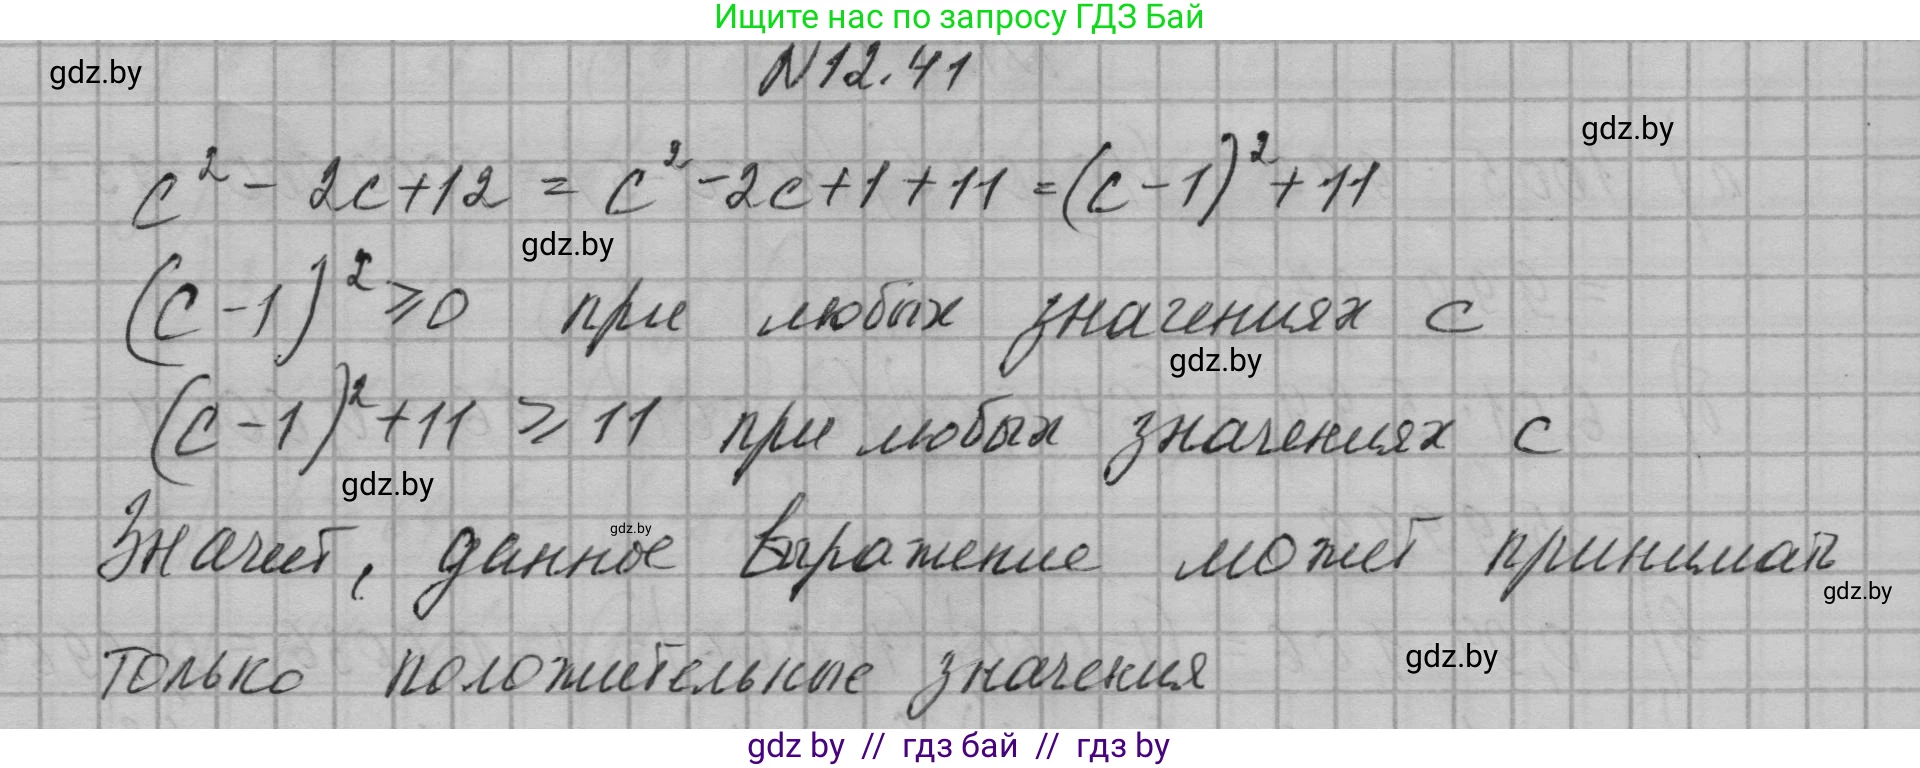 Ищите нас по запросу ГДЗ Бай
N12.41
gdz.by
gdz.by
c² - 2c+12 = c² -2c+1+11 =(c-1)²+11
gdz.by
(c-1)² ⩾0 при любых значениях c
gdz.by
(c-1)²+11 ⩾ 11 при любых значениях c
gdz.by
gdz.by
Значит, данное выражение может принимать
gdz.by
только положительные значения
gdz.by
gdz by // гдз бай // гдз by